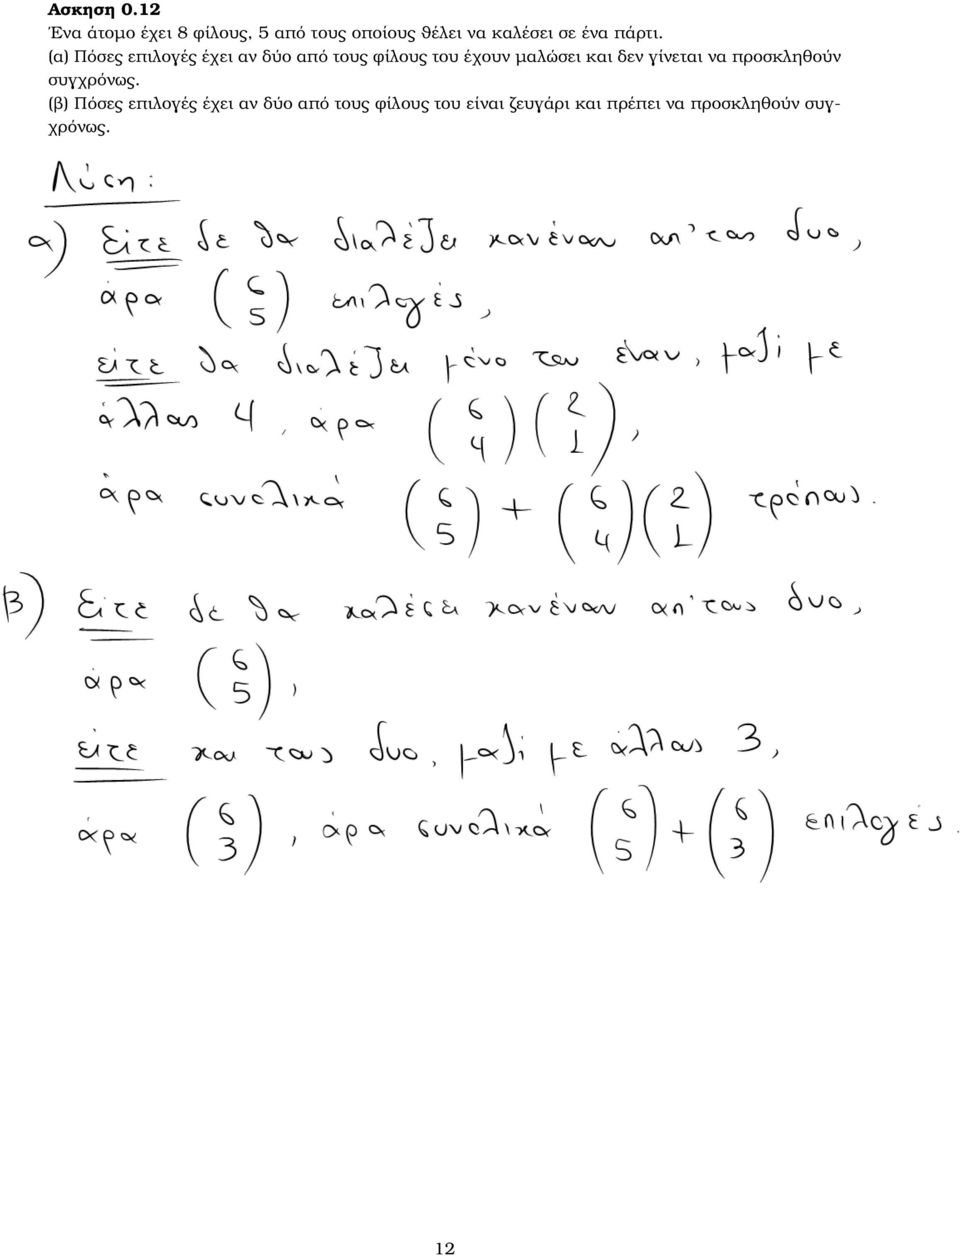 Ασκηση 0.12
Ένα άτομο έχει 8 φίλους, 5 από τους οποίους θέλει να καλέσει σε ένα πάρτι.
(α) Πόσες επιλογές έχει αν δύο από τους φίλους του έχουν μαλώσει και δεν γίνεται να προσκληθούν
συγχρόνως.
(β) Πόσες επιλογές έχει αν δύο από τους φίλους του είναι ζευγάρι και πρέπει να προσκληθούν συγ-
χρόνως.
Λύση:
α) Είτε δε θα διαλέξει κανέναν απ' τους δυο,
άρα (6 5) επιλογές,
είτε θα διαλέξει μόνο τον έναν, μαζί με
άλλους 4, άρα (6 4)(2 1),
άρα συνολικά (6 5) + (6 4)(2 1) τρόπους.
β) Είτε δε θα καλέσει κανέναν απ' τους δυο,
άρα (6 5),
είτε και τους δυο, μαζί με άλλους 3,
άρα (6 3), άρα συνολικά (6 5) + (6 3) επιλογές.
12